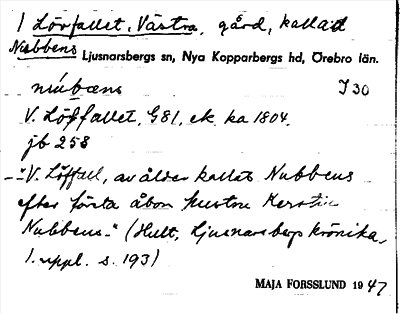 1 Lövfallet, Västra, gård, kallad
Nubbens Ljusnarsbergs sn, Nya Kopparbergs hd, Örebro län.
núbœns I 30
V. Löffallet, G 81, ek ka 1804.
jb 258
–"V. Löffall, av ålder kallats Nubbens
efter första åbon hustru Kerstin
Nubbens." (Hult, Ljusnarsbergs krönika,
1. uppl. s. 193)
MAJA FORSSLUND 1947